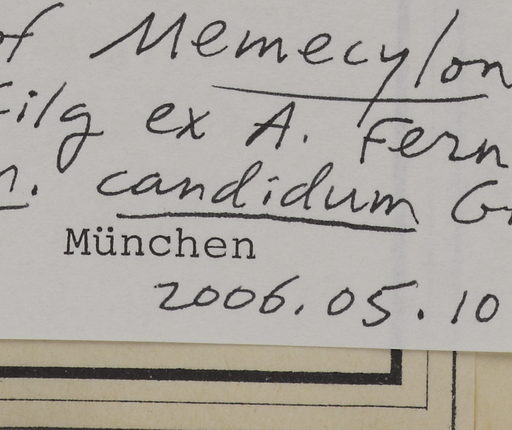 of Memecylon
Gilg ex A. Fern
m. candidum G
München
2006.05.10